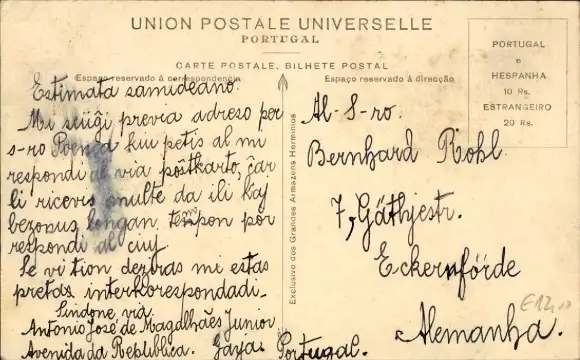 UNION POSTALE UNIVERSELLE
PORTUGAL
CARTE POSTALE, BILHETE POSTAL
Espaço reservado á correspondencia
Espaço reservado á direcção
PORTUGAL
e
HESPANHA
10 Rs.
ESTRANGEIRO
20 Rs.
Estimata samideano.
Mi sciigi previa adreso por
s-ro Poença kiu petis al mi
respondi al via poŝtkarto, ĉar
li ricevis multe da ili kaj
bezonus longan tempon por
respondi al ciuj
Se vi tion deziras mi estas
pretas interkorespondadi-
Sindone, via
Antonio José de Magalhães Junior
Avenida da Republica. Gaya. Portugal.
Exclusivo dos Grandes Armazens Herminios
Al-S-ro.
Bernhard Rohl.
7, Gäthjestr.
Eckernförde
Alemanha.